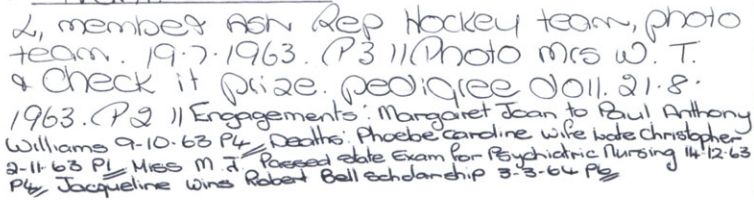 L, member Ash Rep Hockey team, photo
team. 19.7.1963. P3 // Photo Mrs W. T.
& Check it prize. pedigree doll. 21.8.
1963. P2 // Engagements: Margaret Joan to Paul Anthony
Williams 9-10.63 P4 // Deaths: Phoebe Caroline wife late Christopher
2-11.63 P1 // Miss M. J. Passed state Exam for Psychiatric Nursing 14.12.63
P4 // Jacqueline wins Robert Bell Scholarship 3-3-64 P6 //